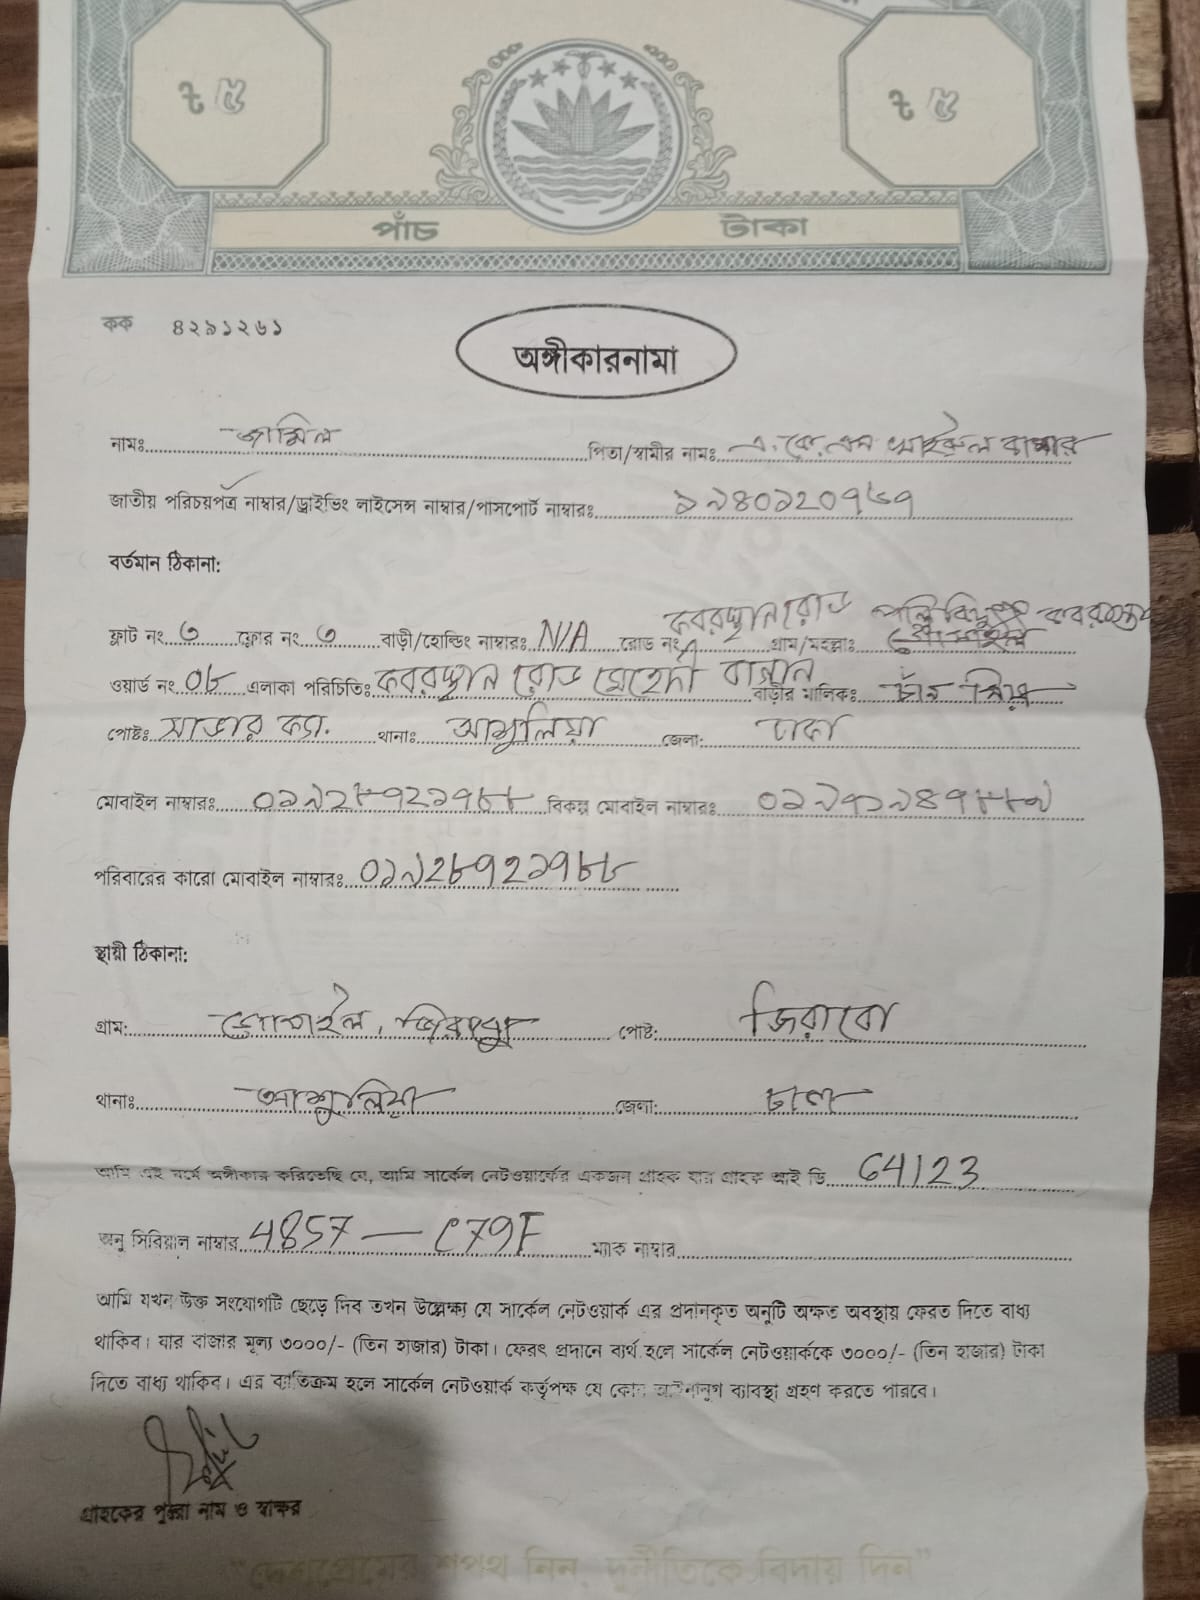 ৳ ৫ ৳ ৫
পাঁচ টাকা
কক ৪২৯১২৬১
অঙ্গীকারনামা
নামঃ জামিল পিতা/স্বামীর নামঃ এ.কে.এম খাইরুল বাশার
জাতীয় পরিচয়পত্র নাম্বার/ড্রাইভিং লাইসেন্স নাম্বার/পাসপোর্ট নাম্বারঃ
বর্তমান ঠিকানা:
ফ্লাট নং ৩ ফ্লোর নং ৩ বাড়ী/হোল্ডিং নাম্বারঃ N/A রোড নং কবরস্থান রোড গ্রাম/মহল্লাঃ পল্লি বিদ্যুৎ
ওয়ার্ড নং ০৮ এলাকা পরিচিতিঃ কবরস্থান রোড মেহেদী বাগান বাড়ীর মালিকঃ চাঁন মিয়া
পোষ্টঃ সাভার ক্যা. থানাঃ আশুলিয়া জেলা: ঢাকা
মোবাইল নাম্বারঃ ০১৯২৮৭২১৭৮৮ বিকল্প মোবাইল নাম্বারঃ
পরিবারের কারো মোবাইল নাম্বারঃ ০১৯২৮৭২১৭৮৮
স্থায়ী ঠিকানা:
গ্রাম: পোষ্ট: জিরাবো
থানাঃ আশুলিয়া জেলা: ঢাকা
আমি এই মর্মে অঙ্গীকার করিতেছি যে, আমি সার্কেল নেটওয়ার্কের একজন গ্রাহক যার গ্রাহক আই ডি 64123
অনু সিরিয়াল নাম্বার 4857 — C79F ম্যাক নাম্বার
আমি যখন উক্ত সংযোগটি ছেড়ে দিব তখন উল্লেক্ষ্য যে সার্কেল নেটওয়ার্ক এর প্রদানকৃত অনুটি অক্ষত অবস্থায় ফেরত দিতে বাধ্য
থাকিব। যার বাজার মূল্য ৩০০০/- (তিন হাজার) টাকা। ফেরৎ প্রদানে ব্যর্থ হলে সার্কেল নেটওয়ার্ককে ৩০০০/- (তিন হাজার) টাকা
দিতে বাধ্য থাকিব। এর ব্যতিক্রম হলে সার্কেল নেটওয়ার্ক কর্তৃপক্ষ যে কোন আইনানুগ ব্যাবস্থা গ্রহণ করতে পারবে।
গ্রাহকের পুরো নাম ও স্বাক্ষর
“দেশপ্রেমের শপথ নিন, দুর্নীতিকে বিদায় দিন”